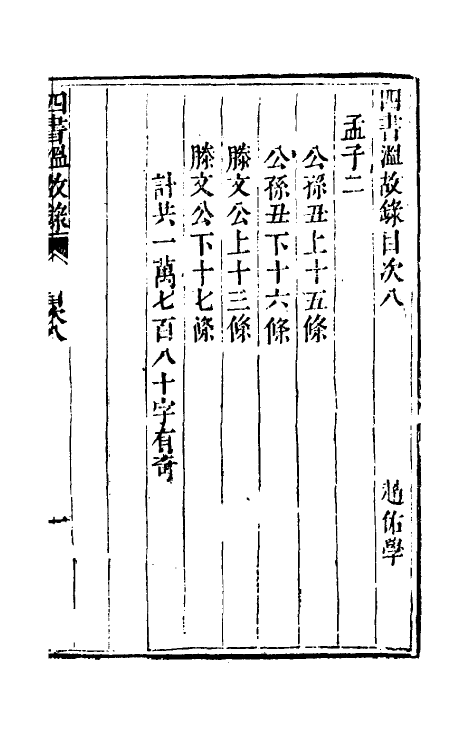 四書溫故錄目次八 趙佑學
孟子二
公孫丑上十五條
公孫丑下十六條
滕文公上十三條
滕文公下十七條
計共一萬七百八十字有奇
四書溫故錄